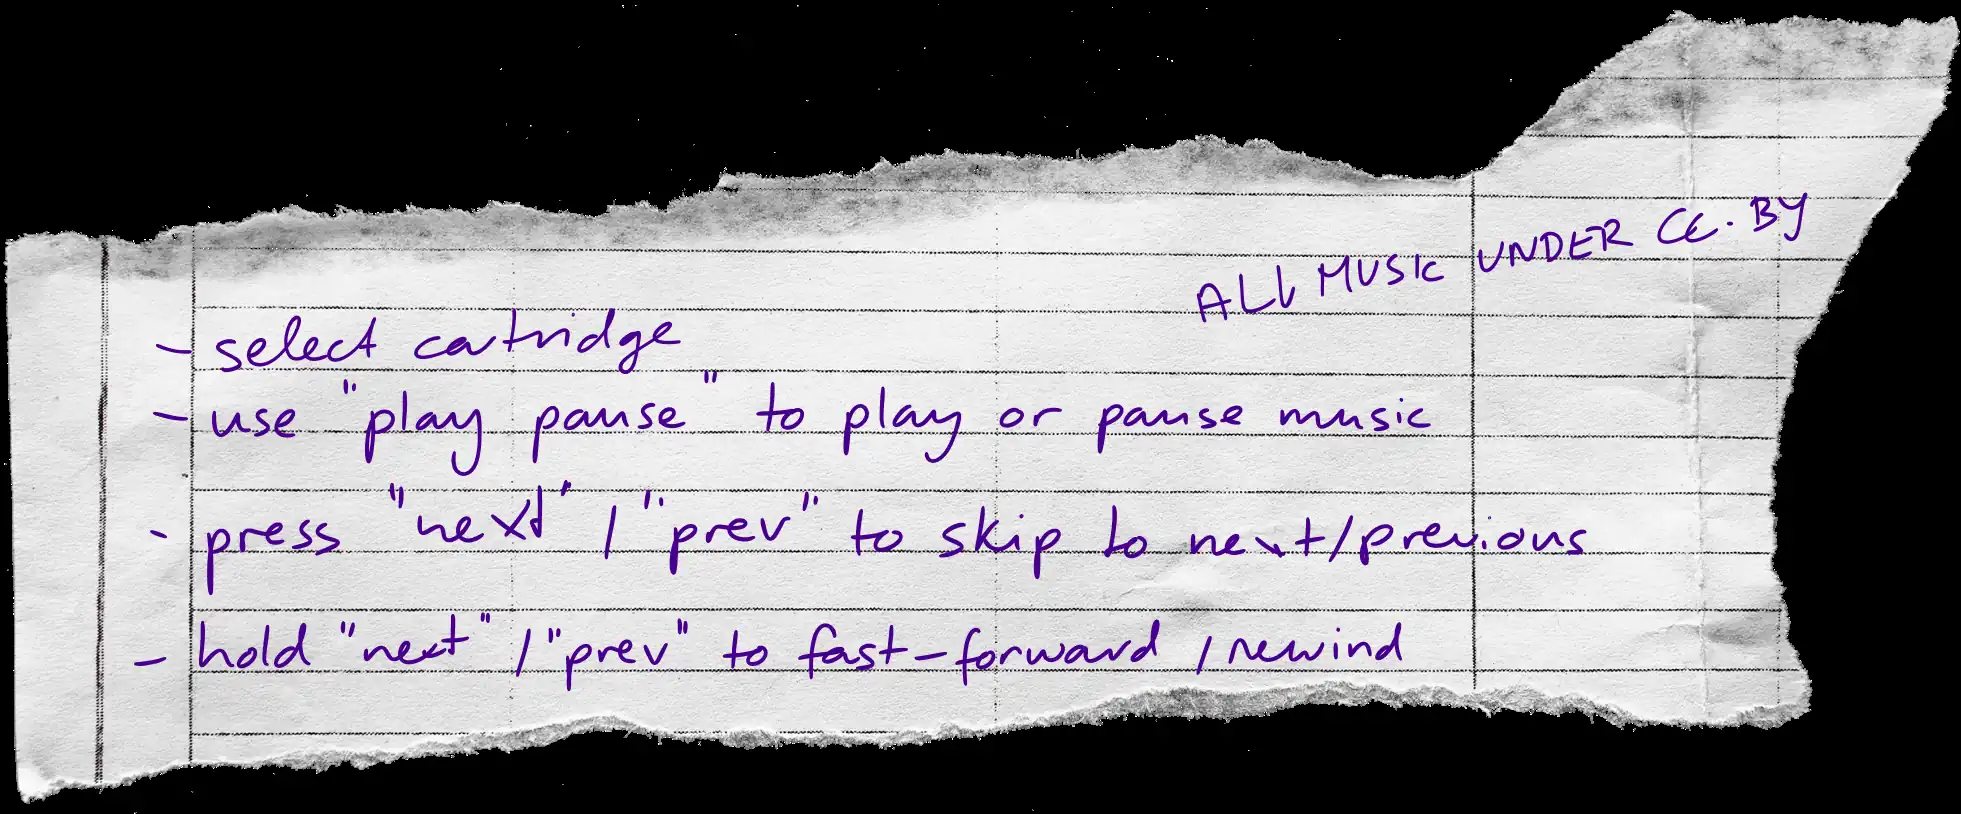 ALL MUSIC UNDER CC-BY
- select cartridge
- use "play pause" to play or pause music
- press "next" / "prev" to skip to next/previous
- hold "next" / "prev" to fast-forward / rewind